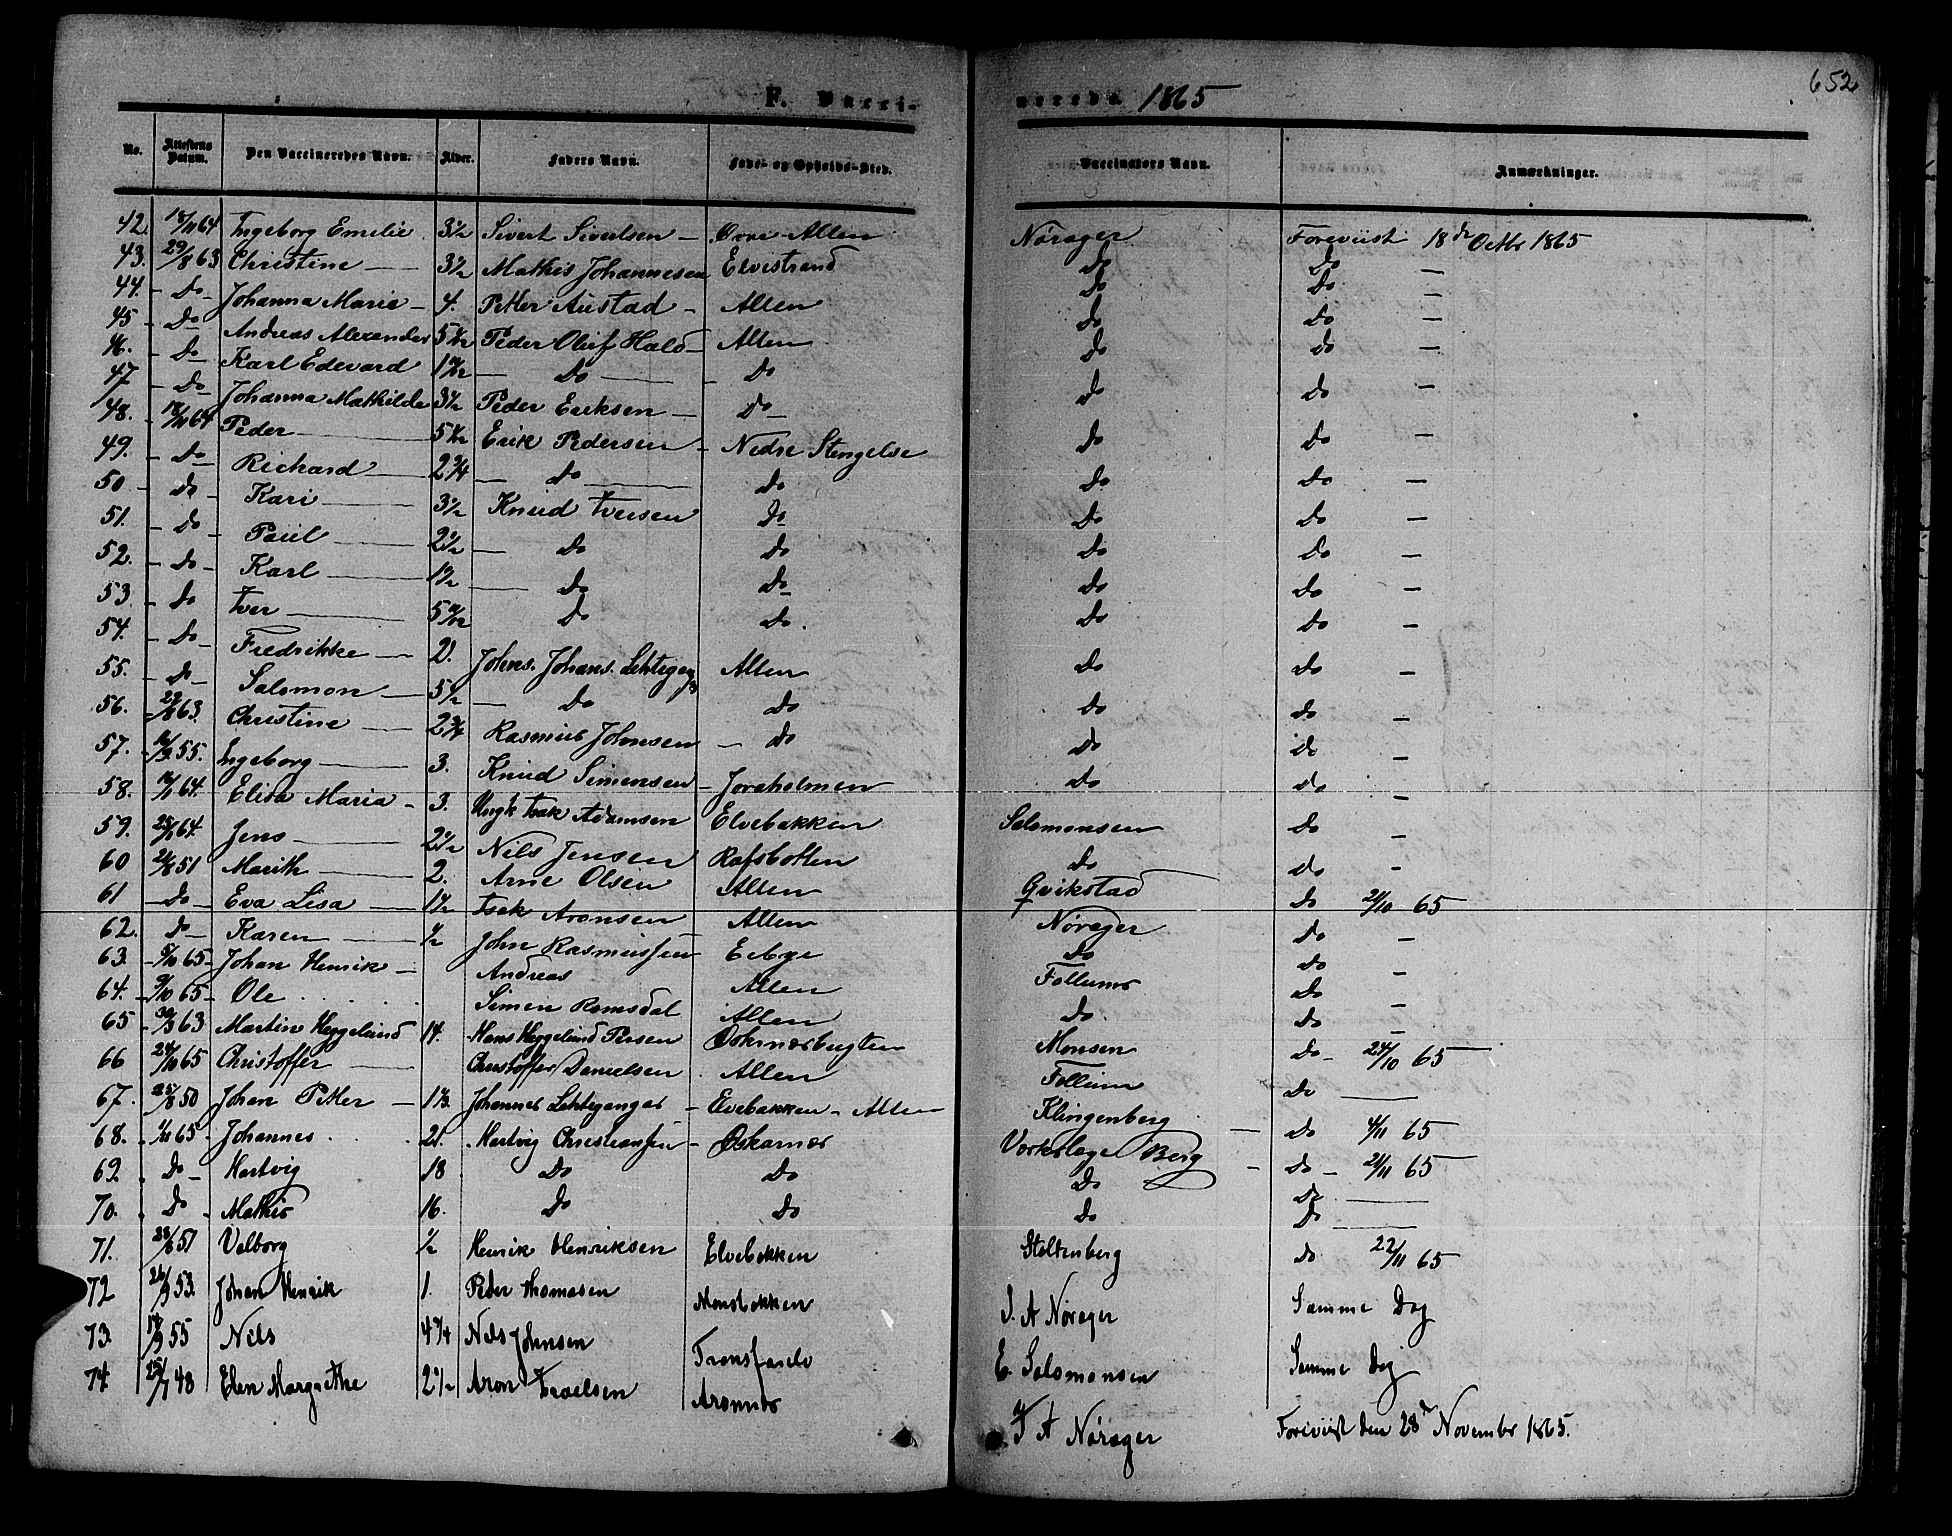 652
F. Vacci- nerede 1865
No. Attestens Datum. Den Vaccineredes Navn. Alder. Faders Navn. Føde- og Opholds-Sted. Vaccinators Navn. Anmærkninger.
42. 18/11 64 Ingeborg Emilie 3 1/2 Sivert Sivertsen Øvre Alten Nørager Foreviist 18de Octbr 1865
43. 29/8 63 Christine 3 1/2 Mathis Johannesen Elvestrand Do Do
44. Do Johanna Maria 4. Petter Austad Alten Do Do
45 Do Andreas Alexander Peder Olif Hald Alten Do Do
46. Do Karl Edevard Do Do Do Do
47 Do Johanna Mathilde 3 1/2 Peder Eriksen Do Do Do
48. 18/11 64 Peder Erik Pedersen Nedre Stengelse Do Do
49. Do Richard 2 3/4 Do Do Do Do
50 Do Kari 3 1/2 Knud Iversen Do Do Do
51. Do Paul 2 1/2 Do Do Do Do
52. Do Karl 1 1/2 Do Do Do Do
53 Do Iver Do Do Do Do
54. Do Fredrikke 2. Johns. Johans. Alten Do Do
55. Do Salomon 5 1/2 Do Do Do Do
56. 29/8 63. Christine 2 3/4 Rasmus Johnsen Do Do Do
57. 55. Ingeborg 3. Knud Simensen Joraholmen Do Do
58. 64. Elisa Maria 3. Isak Adamsen Elvebakken Salomonsen Do
59. 64. Jens 2 1/2 Nils Jensen Rafsbotten Do Do
60 51 Marith 2. Arne Olsen Alten Qvikstad Do 21/10 65
61 Do Eva Lisa 1 1/2 Isak Aronsen Alten Nørager Do
62. Do Karen 1/2 John Rasmussen Eibye Do Do
63. 65 Johan Henrik Andreas Alten Follums Do
64. 9/10 65 Ole Simen Romsdal Alten Do. Do
65 30/3 63 Martin Heggelund 14. Hans Heggelund Persen Oskarnæsbugten Monsen Do 24/10 65
66 24/10 65 Christoffer Christoffer Danielsen Alten Follum Do
67. 25/8 50 Johan Petter Johannes Lehteganges Elvebakken Alten Klingenberg Do 4/11 65
68. 65 Johannes 21. Hartvig Christiansen Oskarnæs Berg Do 21/11 65
69. Do Hartvig 18 Do Do Do Do
70. Do Mathis 16. Do Do Do Do
71. 23/6 51 Valborg 1/2 Henrik Henriksen Elvebakken Stoltenberg Do 22/11 65
72 53. Johan Henrik 1. Peder Thomasen Monsbakken J. A Nørager Samme Dag
73. 55 Nils 4 3/4 Nils Johnsen E. Salomonsen Samme Dag
74. 25/7 48 Elen Margrethe 2 1/2 Aron Troelsen Aronnæs J A Nørager Foreviist den 28de November 1865.